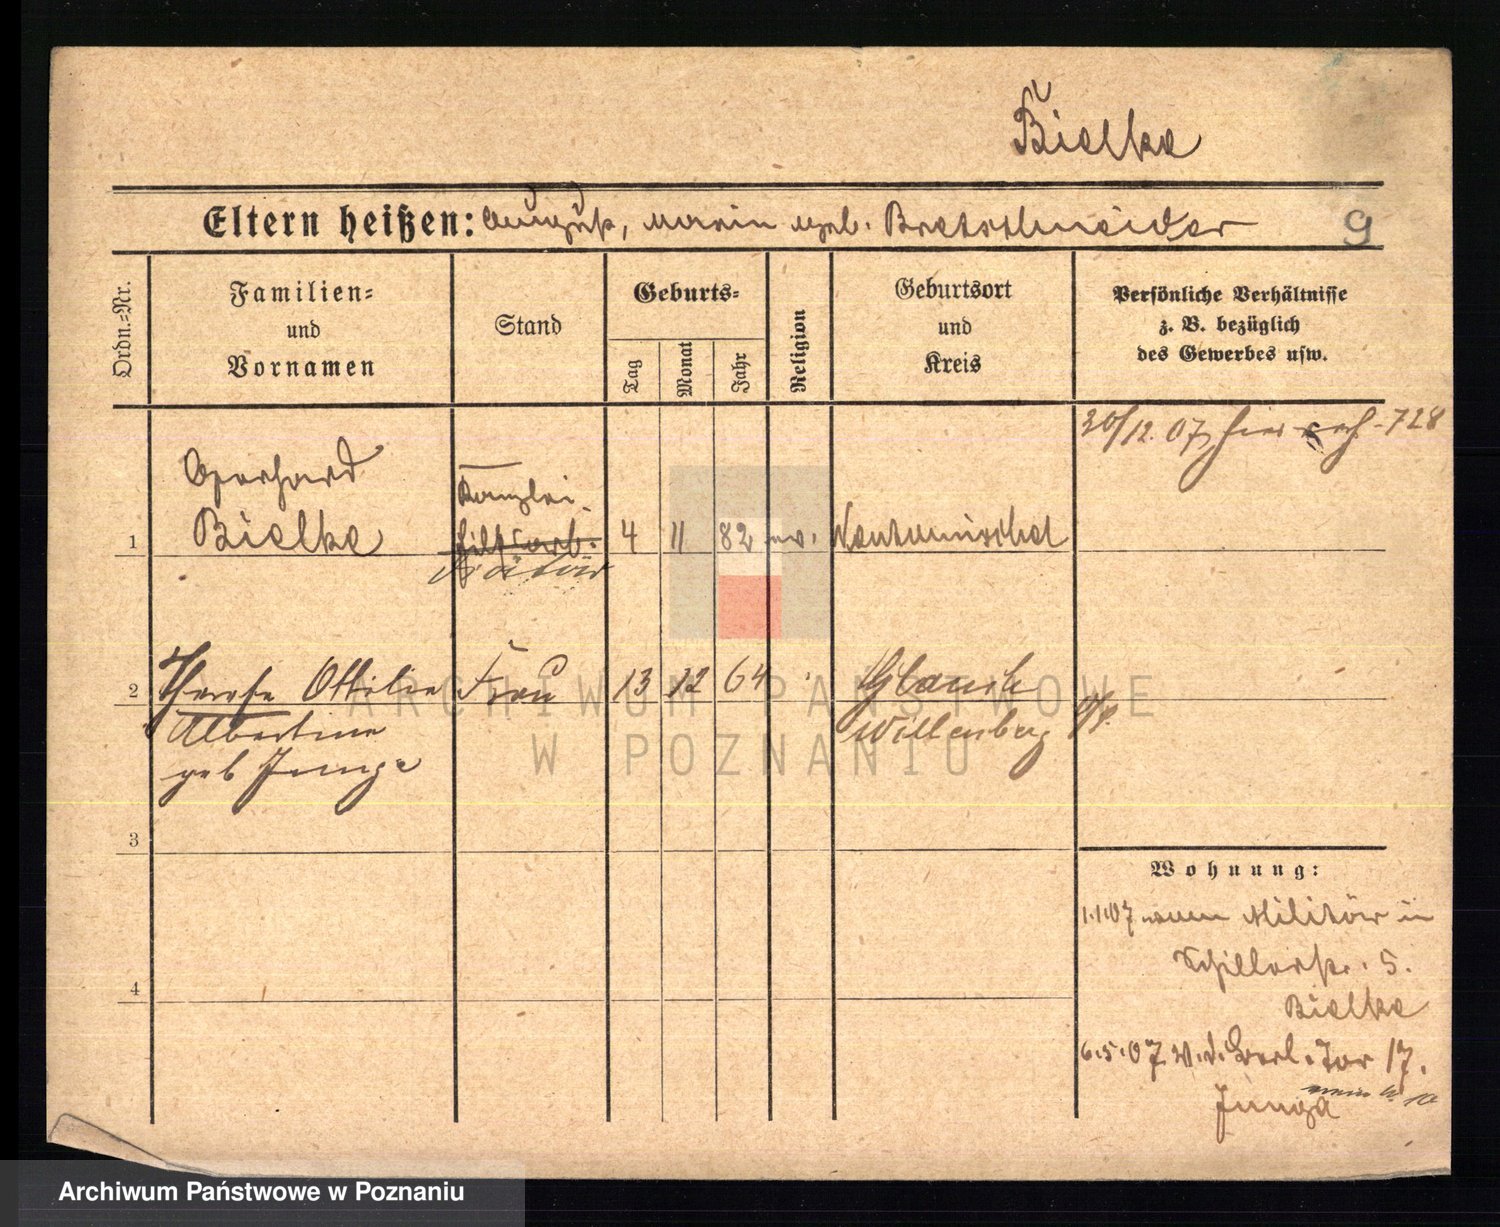 Bielke
Eltern heißen: August, Marie geb. Bretschneider
9
Ordn.-Nr.
Familien-
und
Vornamen
Stand
Geburts-
Tag
Monat
Jahr
Religion
Geburtsort
und
Kreis
Persönliche Verhältnisse
z. B. bezüglich
des Gewerbes usw.
30/12. 07 hier 728
Gerhard
Bielke
Kanzlei
hilfsarb.
1
4 11 82 ev.
2
Therese Ottilie Frau 13 12 64
Albertine
geb Junge
Willenberg
3
4
Wohnung:
1.1.07 vom Militär in
Schillerstr. 5.
Bielke
6.5.07 V. d. Berl. Tor 17.
Junga
ARCHIWUM PAŃSTWOWE
W POZNANIU
Archiwum Państwowe w Poznaniu